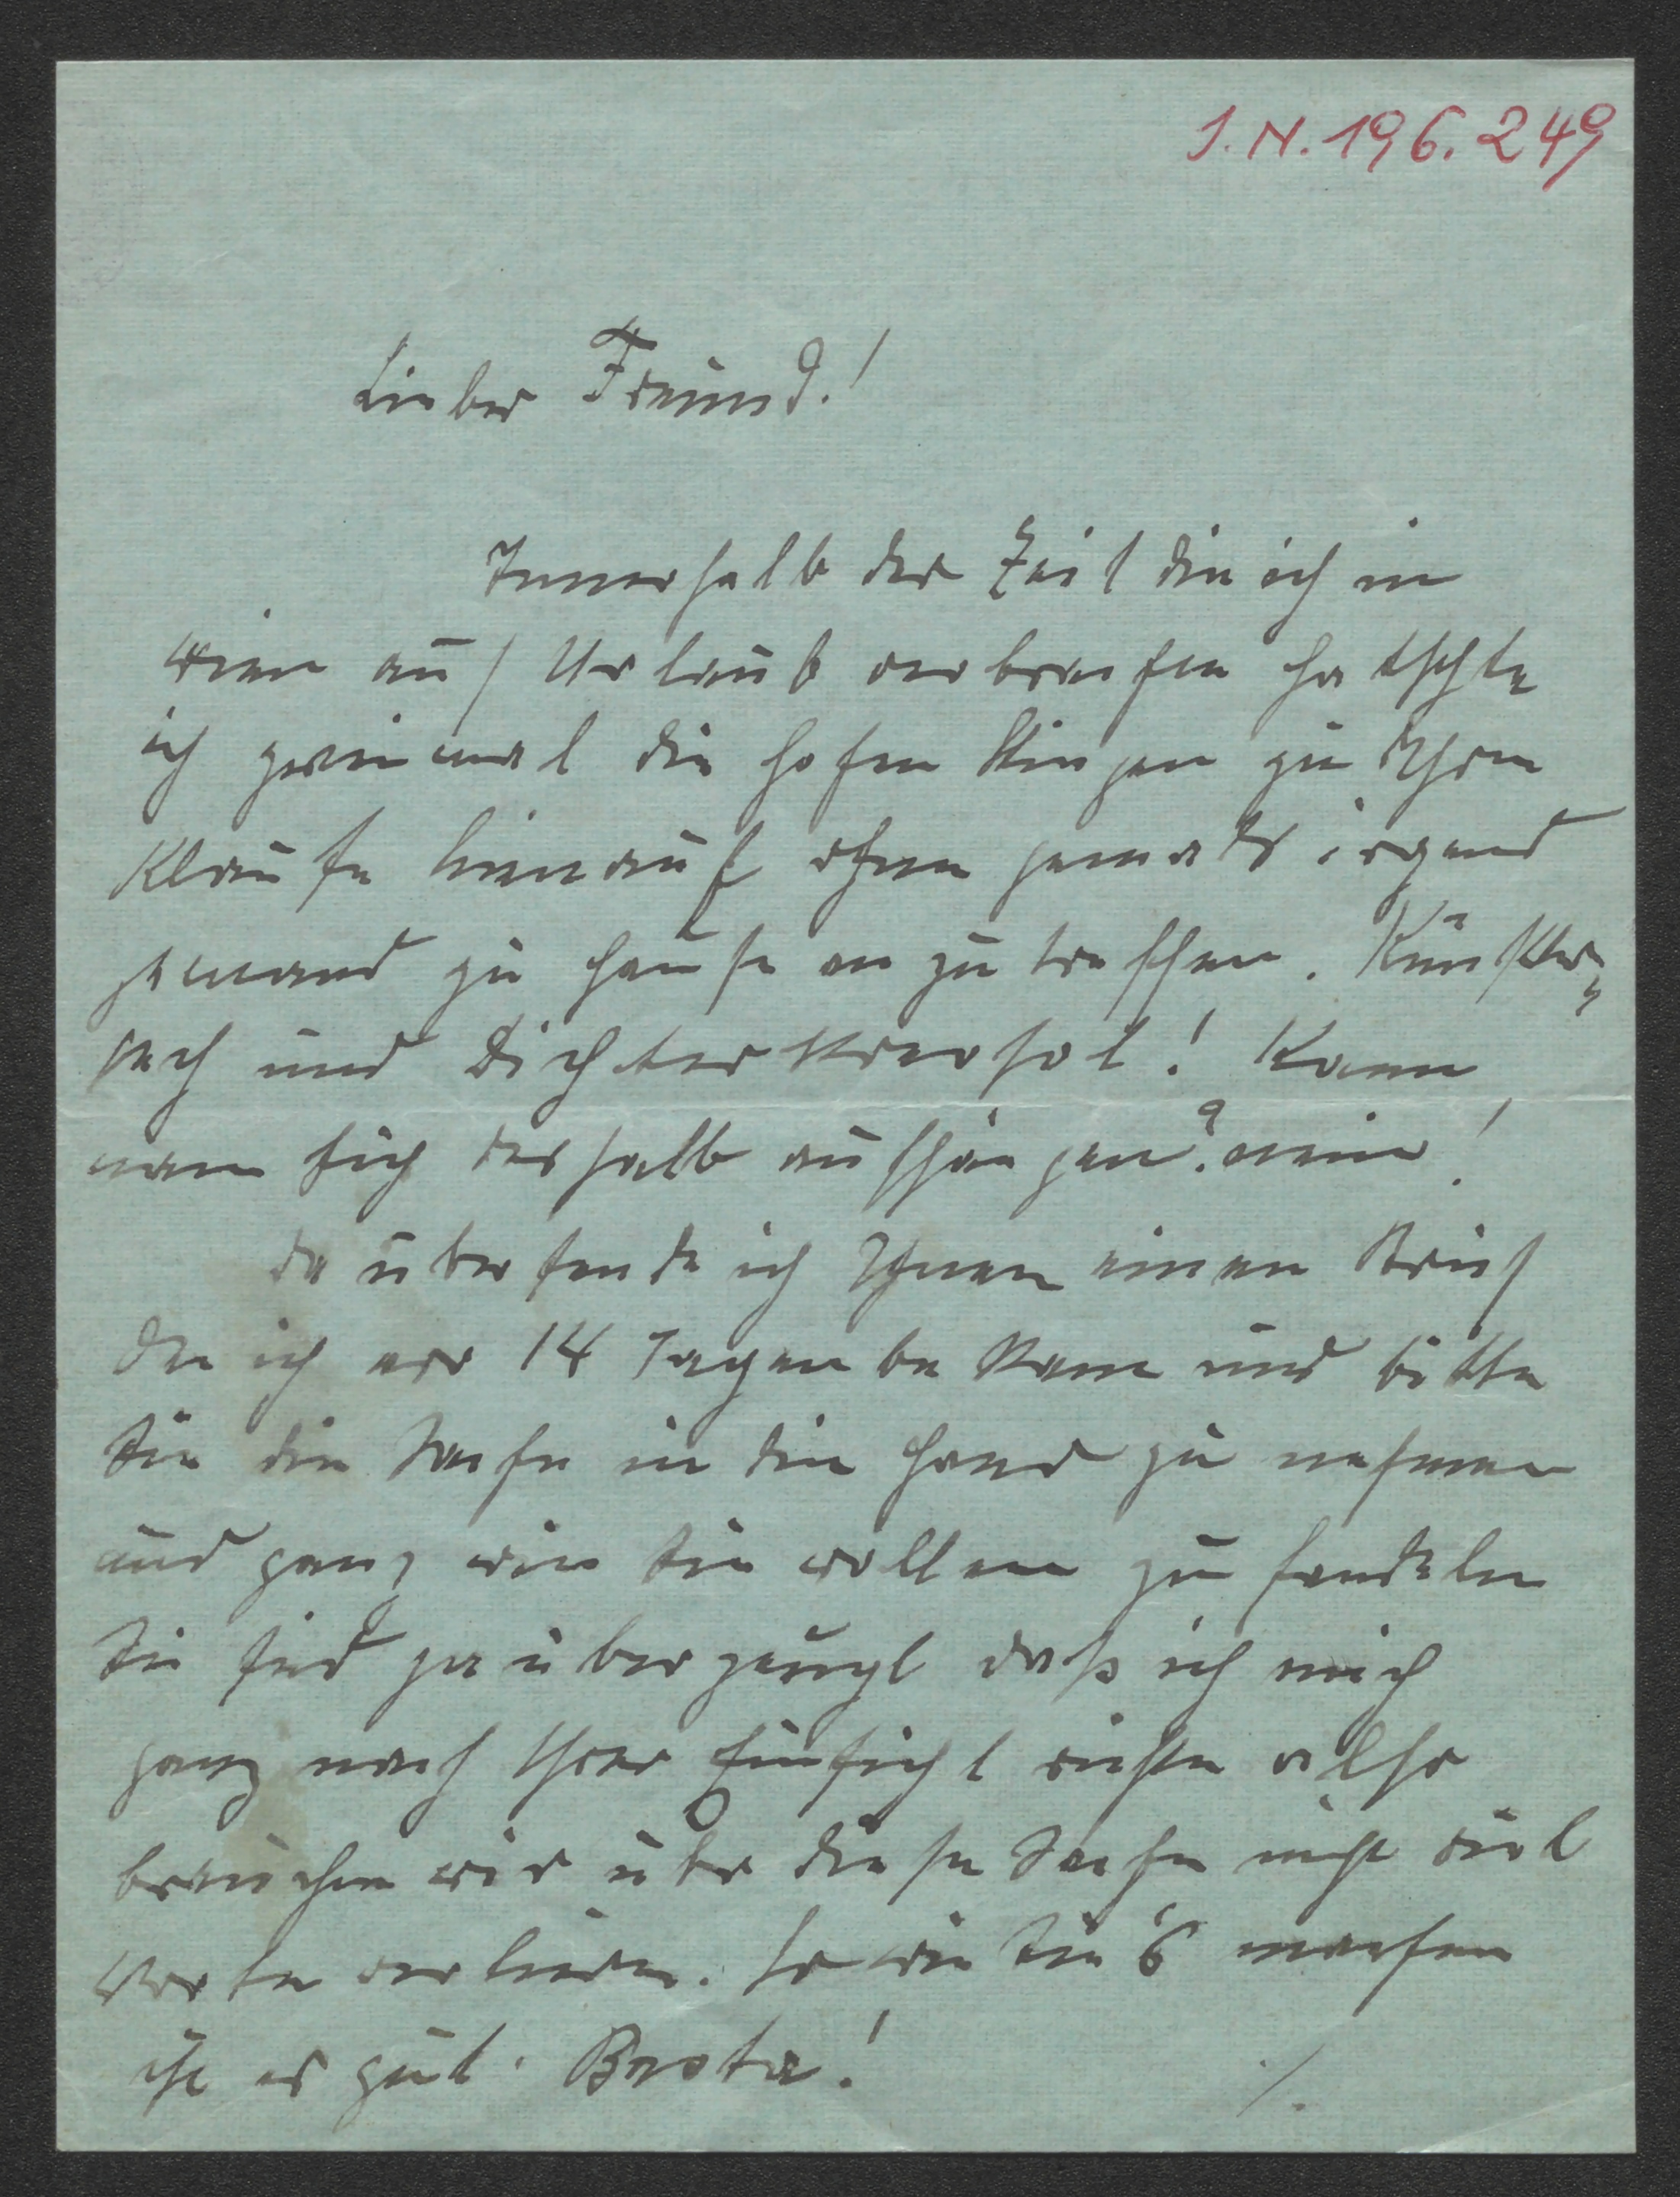 I.N. 196.249
Lieber Freund!
Innerhalb der Zeit die ich in
Wien auf Urlaub verbrachte hatschte
ich zweimal die hohen Stiegen zu Ihrer
Klause hinauf ohne jemals irgend
jemand zu Hause an zu treffen. Künstler-
pech und Dichterschicksal! Kann
man sich deshalb aufhängen? nein!
Da übersende ich Ihnen einen Brief
den ich vor 14 Tagen bekam und bitte
Sie die Sache in die Hand zu nehmen
und ganz wie Sie wollen zu handeln
Sie sind ja überzeugt daß ich mich
ganz nach Ihrer Einsicht richte also
brauchen wir über diese Sache nicht viel
Worte verlieren. So wie Sie's machen
ist es gut. Basta!
./.